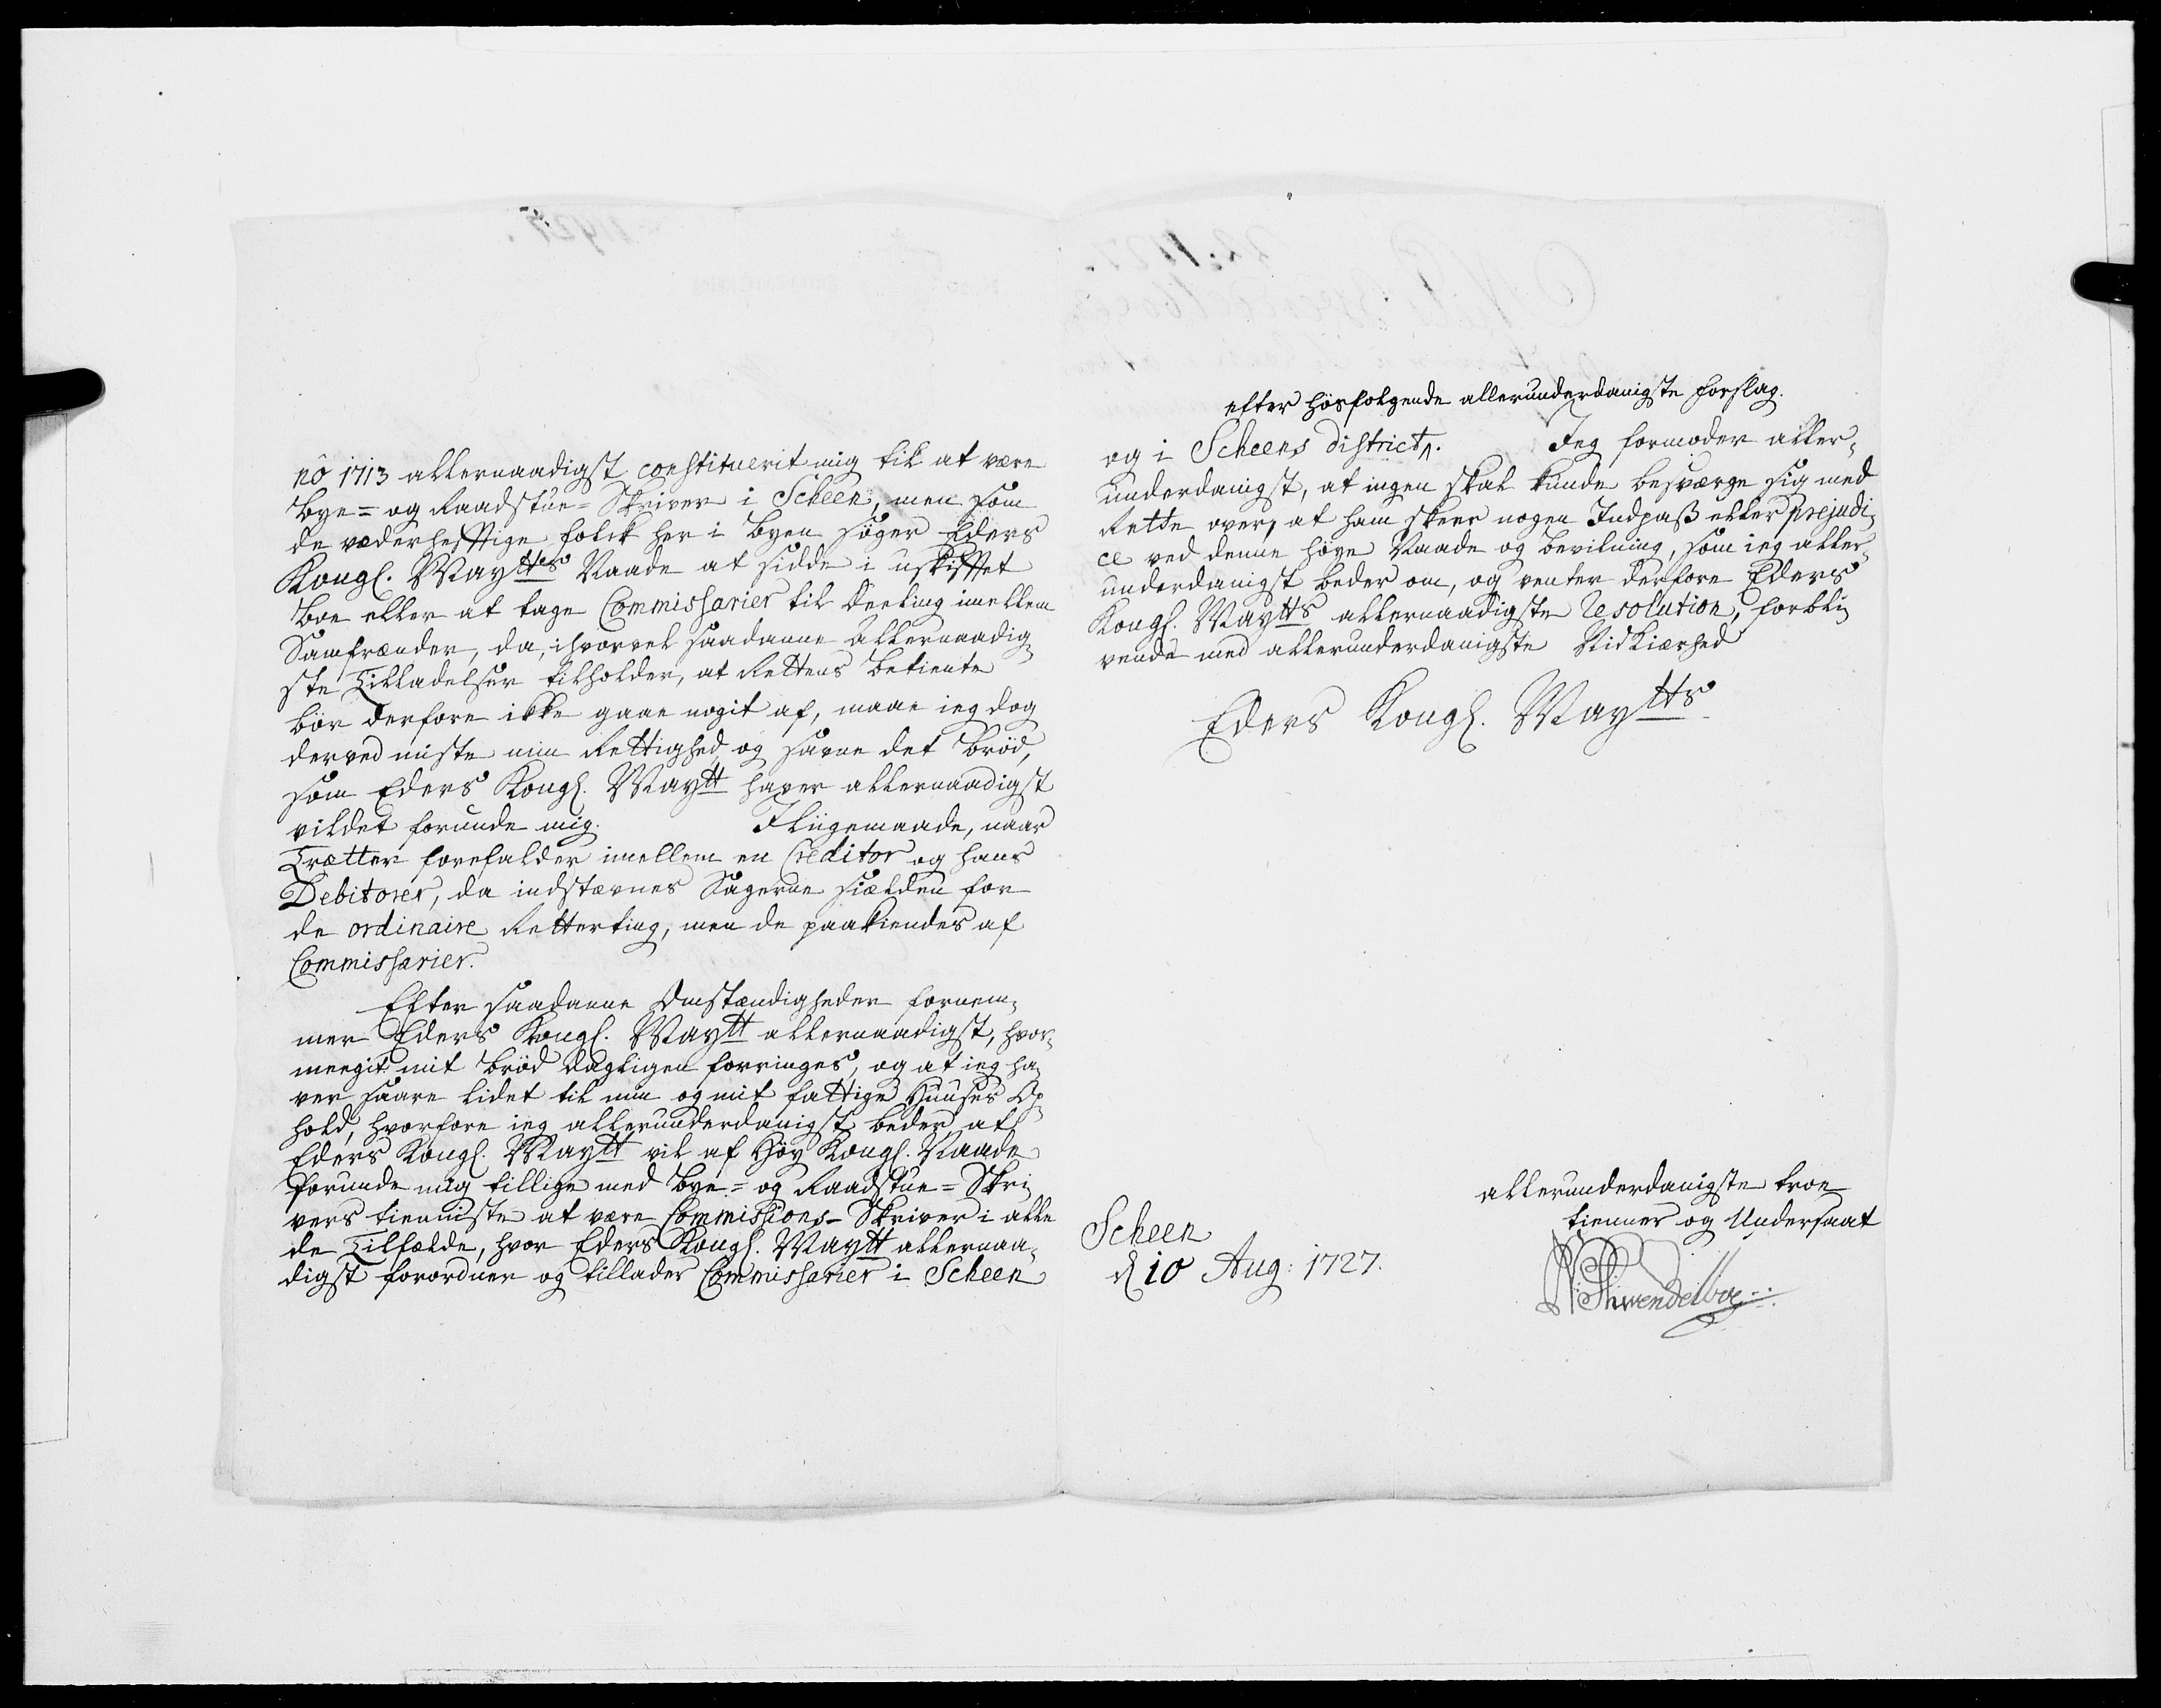 nô 1713 allernaadigst constituerit mig til at være
Bye= og Raadstue=Skriver i Scheen, men som
de vederhefftige folck her i Byen söger Eders
Kongl. Maytts Naade at sidde i uskifftet
Boe eller at tage Commissarier til Deeling imellem
Samfrænder, da, ihvorvel saadanne allernaadig¬
ste Tilladelser tilholder, at Rettens betiente
bör derfore ikke gaae nogit af, maae ieg dog
derved miste min Rettighed, og savne det Bröd,
som Eders Kongl. Maytt haver allernaadigst
vildet forunde mig. I liigemaade, naar
Trætter forefalder imellem en Creditor og hans
Debitorer, da indstævnes Sagerne siælden for
de ordinaire Retterting, men de paakiendes af
Commissarier.
Efter saadanne Omstændigheder fornem¬
mer Eders Kongl. Maytt allernaadigst, hvor¬
meegit mit Bröd dagligen forringes, og at ieg ha¬
ver saare lidet til min og mit fattige Huuses Op¬
hold, hvorfore ieg allerunderdanigst beder, at
Eders Kongl. Maytt vil af Höy Kongl. Naade
forunde mig tillige med Bye= og Raadstue=Skri¬
vers tienniste at være Commissions-Skriver i alle
de Tilfælde, hvor Eders Kongl. Maytt allernaa¬
digst forordner og tillader Commissarier i Scheen
efter hösfolgende allerunderdanigste forslag.
og i Scheens district. Jeg formoder aller¬
underdanigst, at ingen skal kunde besværge sig med
Rette over, at ham skeer nogen Indpaß eller prejudi¬
ce ved denne höye Naade og bevilning, som ieg aller¬
underdanigst beder om, og venter derfore Eders
Kongl. Maytts allernaadigste Resolution, forbli¬
vende med allerunderdanigste Nidkiærhed
Eders Kongl. Maytts
allerunderdanigste troe
tienner og Undersaat
Scheen
d 10 Aug: 1727.